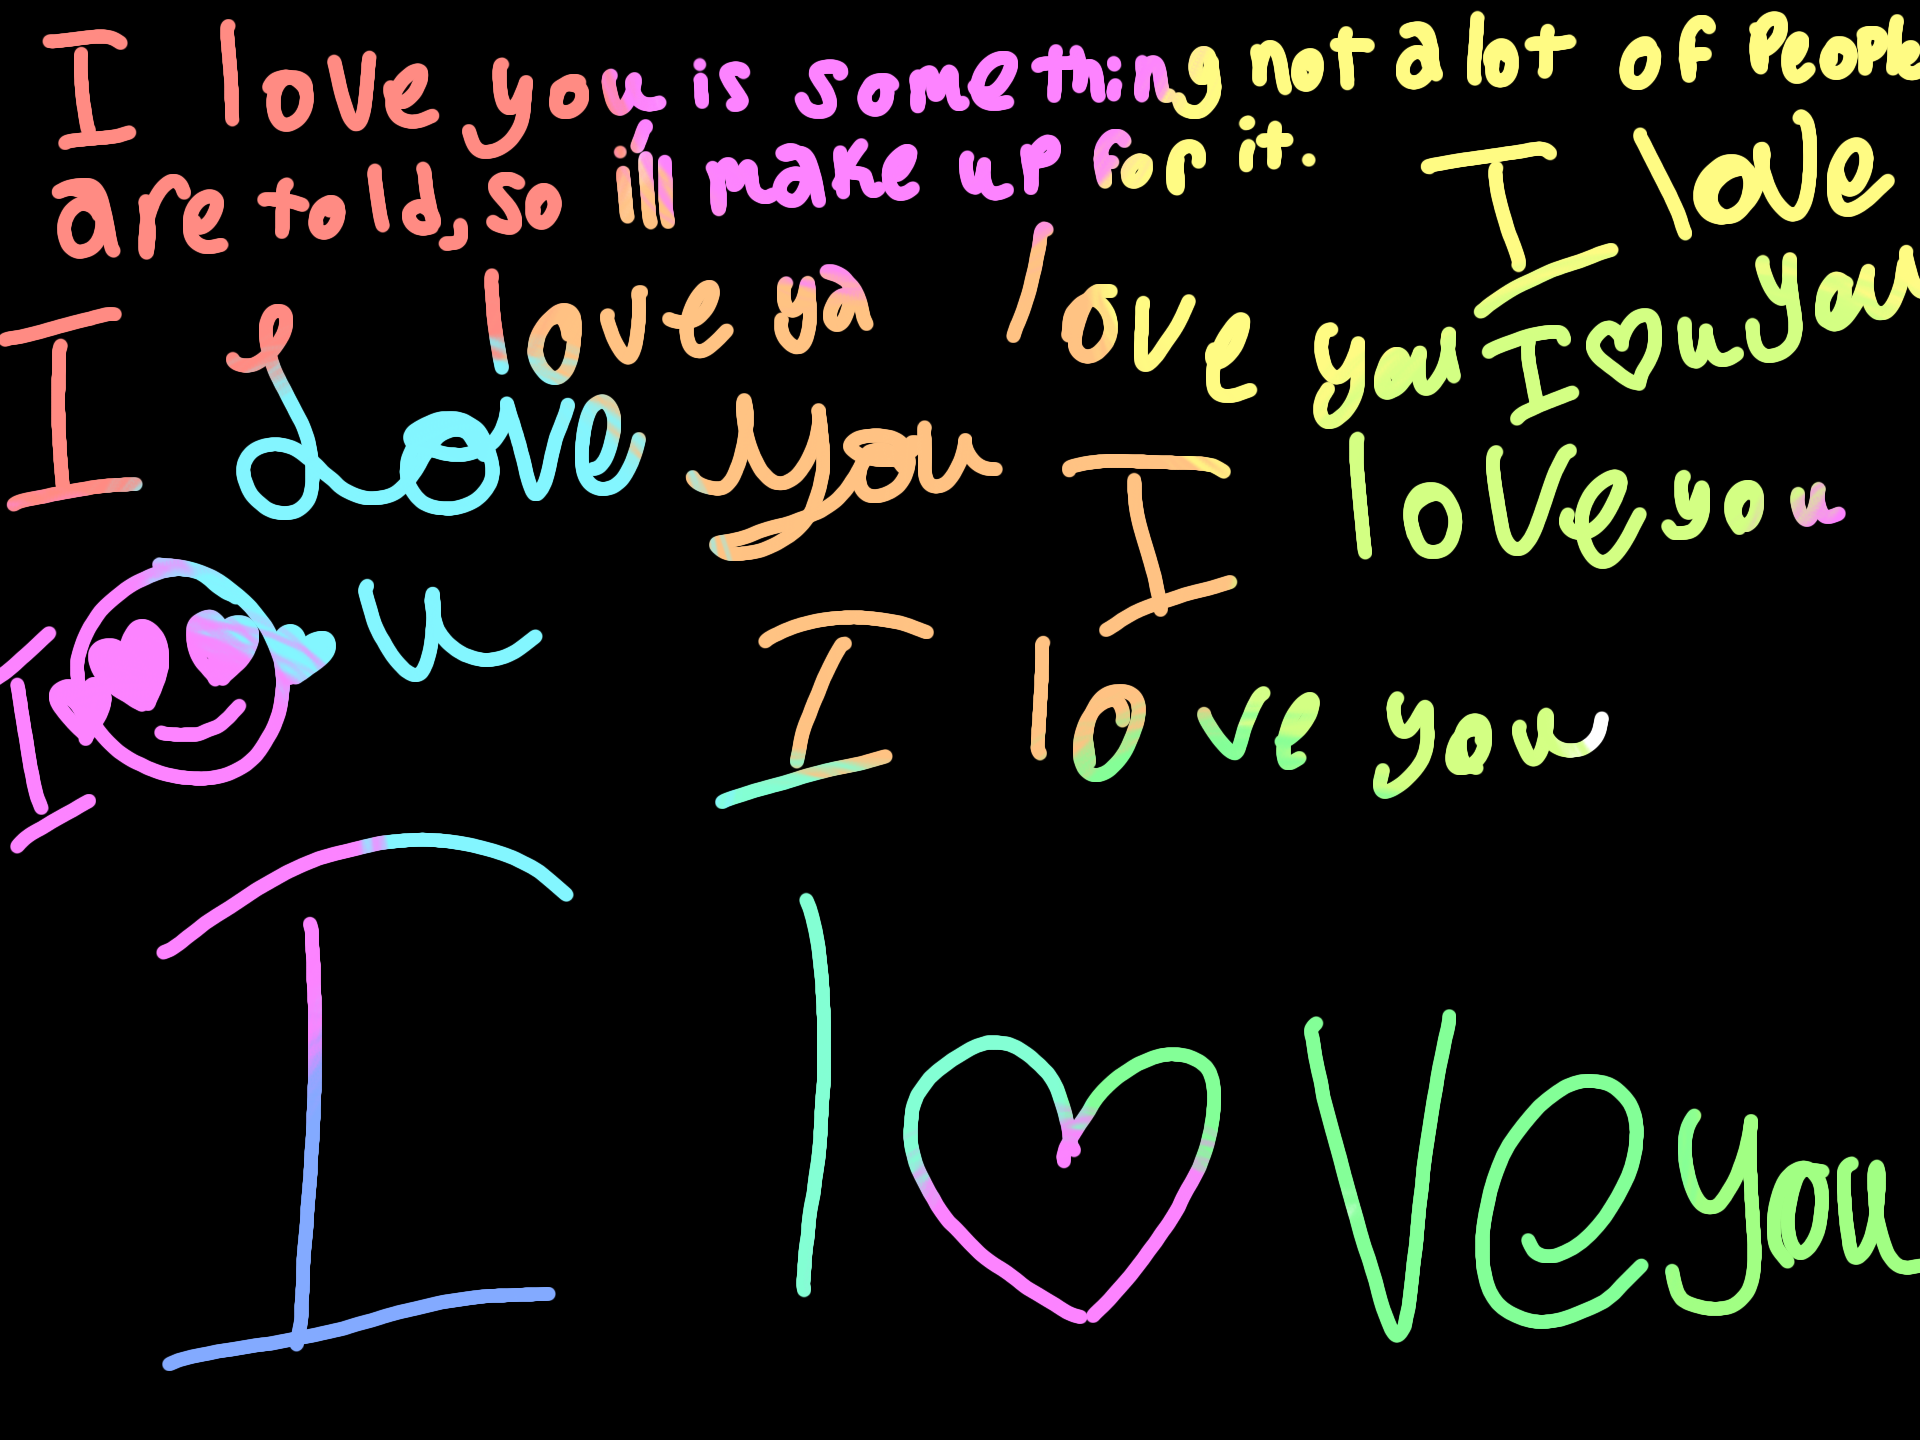 I love you is something not a lot of people
are told, so i'll make up for it.
I love you
love ya
love you
I ♡ u
I Love you
I love you
I u
I love you
I l♡ve you